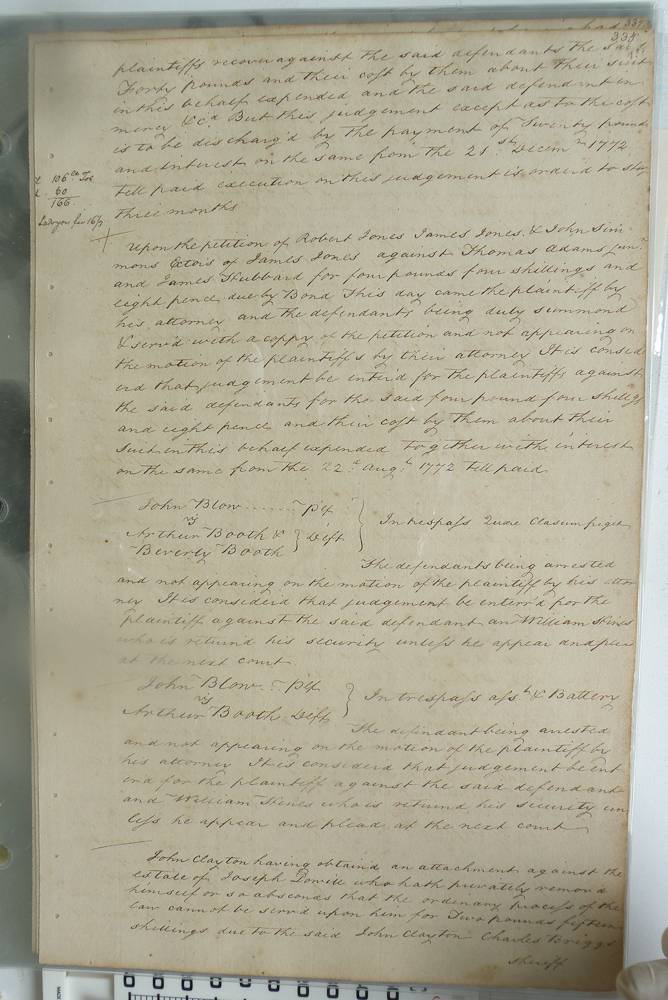 337
338
plaintiffs recover against the said defendants the said
Forty pounds and their cost by them about their suit
in this behalf expended and the said defendant in
mercy &c.a But this judgement except as to the cost
is to be discharg'd by the payment of Twenty pounds
and interest on the same from the 21st. Decim.r 1772
till paid execution on this judgement is orderd to stay
three months
106 Tob
60
166
Upon the petition of Robert Jones James Jones & John Sim-
mons Extors of James Jones against Thomas Adams jun.r
and James Hubbard for four pounds four shillings and
eight pence due by Bond This day came the plaintiff by
his attorney and the defendants being duly summond
& serv'd with a coppy of the petition and not appearing on
the motion of the plaintiffs by their attorney It is consid
erd that judgement be enter'd for the plaintiffs against
the said defendants for the said four pound four shillgs
and eight pence and their cost by them about their
suit in this behalf expended together with interest
on the same from the 22d. Aug.t 1772 till paid
John Blow Plf
vs
Arthur Booth & } Deft } In trespass Quare Clasum friget
Beverly Booth
The defendants being arrested
and not appearing on the motion of the plaintiff by his attor
ney It is considerd that judgement be enterr'd for the
plaintiff against the said defendant and William Hines
who is returnd his security unless he appear and plead
at the next court
John Blow Plf
vs } In trespass asst. & Battery
Arthur Booth Deft
The defendant being arrested
and not appearing on the motion of the plaintiff by
his attorney It is considerd that judgement be ent
erd for the plaintiff against the said defendant
and William Hines who is returnd his security un
less he appear and plead at the next court
John Clayton having obtaind an attachment against the
estate of Joseph who hath privately remov'd
himself or so absconds that the ordenary process of the
law cannot be serv'd upon him for Two pounds fifteen
shillings due to the said John Clayton Charles Briggs
sheriff